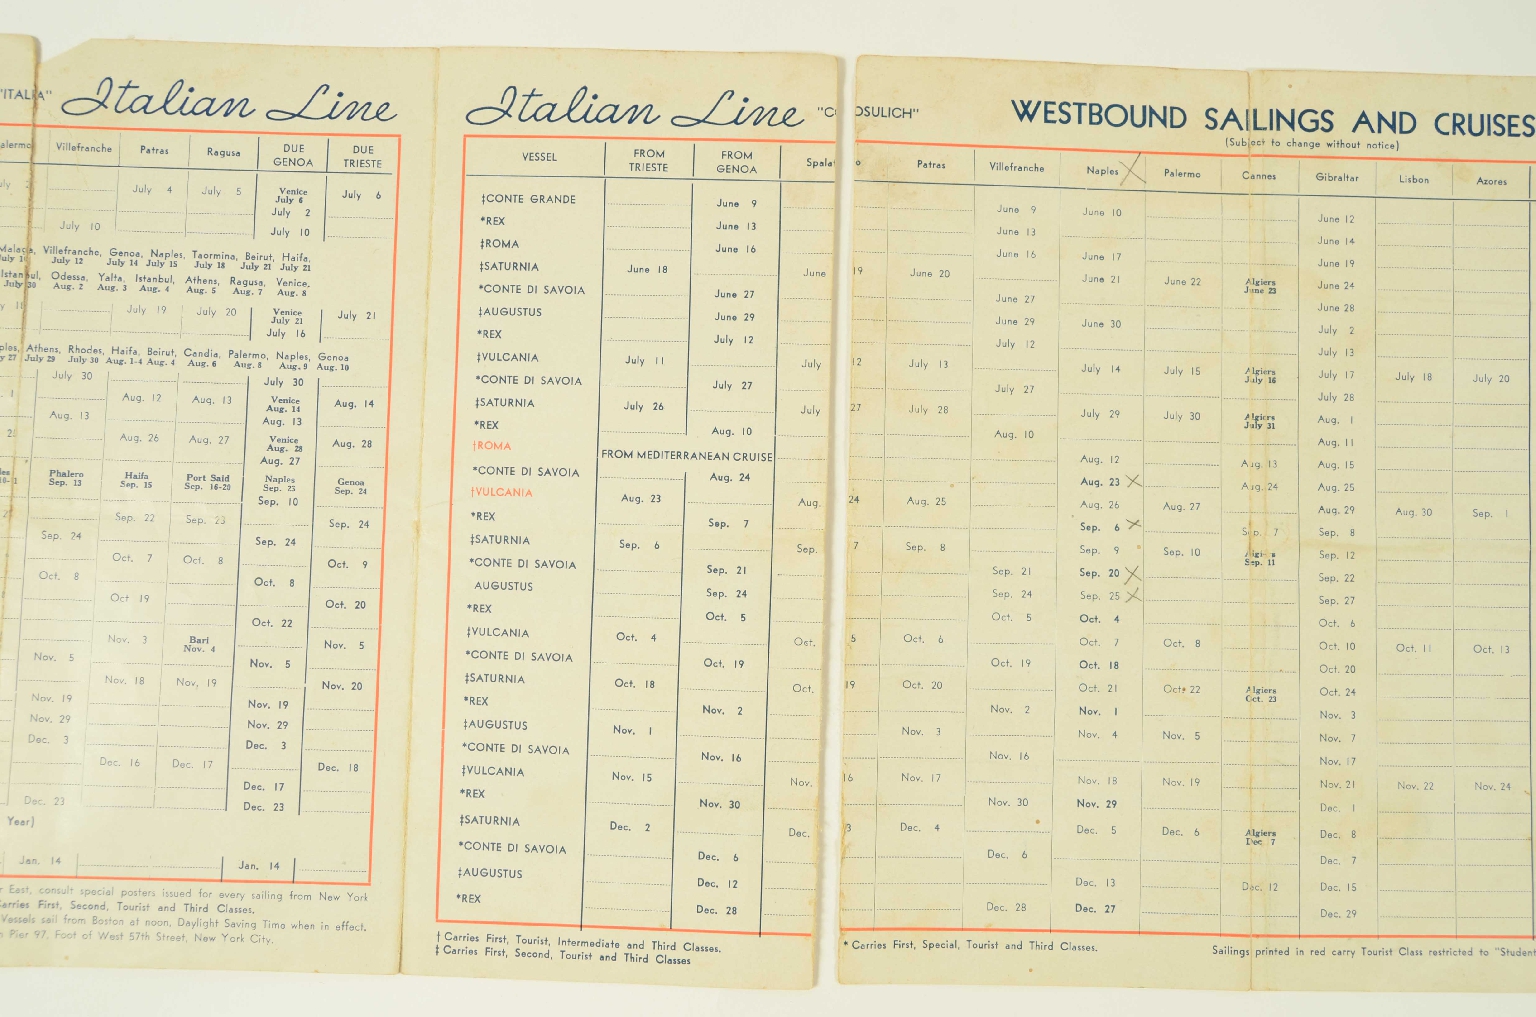 "ITALIA" Italian Line
Palermo Villefranche Patras Ragusa DUE GENOA DUE TRIESTE
July 4 July 5 Venice July 6 July 6
July 2
July 10 July 10
Malaga, Villefranche, Genoa, Naples, Taormina, Beirut, Haifa,
July 12 July 14 July 15 July 18 July 21 July 21
Istanbul, Odessa, Yalta, Istanbul, Athens, Ragusa, Venice.
July 30 Aug. 2 Aug. 3 Aug. 4 Aug. 5 Aug. 7 Aug. 8
July 19 July 20 Venice July 21 July 21
July 16
Athens, Rhodes, Haifa, Beirut, Candia, Palermo, Naples, Genoa
July 29 July 30 Aug. 1-4 Aug. 4 Aug. 6 Aug. 8 Aug. 9 Aug. 10
July 30 July 30
Aug. 12 Aug. 13 Venice Aug. 14 Aug. 14
Aug. 13 Aug. 13
Aug. 26 Aug. 27 Venice Aug. 28 Aug. 28
Aug. 27
Phalero Sep. 13 Haifa Sep. 15 Port Said Sep. 16-20 Naples Sep. 23 Genoa Sep. 24
Sep. 10
Sep. 22 Sep. 23 Sep. 24
Sep. 24 Sep. 24
Oct. 7 Oct. 8 Oct. 9
Oct. 8 Oct. 8
Oct 19 Oct. 20
Oct. 22
Nov. 3 Bari Nov. 4 Nov. 5
Nov. 5 Nov. 5
Nov. 18 Nov. 19 Nov. 20
Nov. 19 Nov. 19
Nov. 29 Nov. 29
Dec. 3 Dec. 3
Dec. 16 Dec. 17 Dec. 18
Dec. 17
Dec. 23 Dec. 23
Year)
Jan. 14 Jan. 14
East, consult special posters issued for every sailing from New York
Carries First, Second, Tourist and Third Classes.
Vessels sail from Boston at noon, Daylight Saving Time when in effect.
Pier 97, Foot of West 57th Street, New York City.
Italian Line "COSULICH" WESTBOUND SAILINGS AND CRUISES
(Subject to change without notice)
VESSEL FROM TRIESTE FROM GENOA Spalato Patras Villefranche Naples Palermo Cannes Gibraltar Lisbon Azores
‡CONTE GRANDE June 9 June 9 June 10 June 12
*REX June 13 June 13 June 14
‡ROMA June 16 June 16 June 17 June 19
‡SATURNIA June 18 June 19 June 20 June 21 June 22 Algiers June 23 June 24
*CONTE DI SAVOIA June 27 June 27 June 28
‡AUGUSTUS June 29 June 29 June 30 July 2
*REX July 12 July 12 July 13
‡VULCANIA July 11 July 12 July 13 July 14 July 15 Algiers July 16 July 17 July 18 July 20
*CONTE DI SAVOIA July 27 July 27 July 28
‡SATURNIA July 26 July 27 July 28 July 29 July 30 Algiers July 31 Aug. 1
*REX Aug. 10 Aug. 10 Aug. 11
†ROMA FROM MEDITERRANEAN CRUISE Aug. 12 Aug. 13 Aug. 15
*CONTE DI SAVOIA Aug. 24 Aug. 23 Aug. 24 Aug. 25
†VULCANIA Aug. 23 Aug. 24 Aug. 25 Aug. 26 Aug. 27 Aug. 29 Aug. 30 Sep. 1
*REX Sep. 7 Sep. 6 Sep. 7 Sep. 8
‡SATURNIA Sep. 6 Sep. 7 Sep. 8 Sep. 9 Sep. 10 Algiers Sep. 11 Sep. 12
*CONTE DI SAVOIA Sep. 21 Sep. 21 Sep. 20 Sep. 22
AUGUSTUS Sep. 24 Sep. 24 Sep. 25 Sep. 27
*REX Oct. 5 Oct. 5 Oct. 4 Oct. 6
‡VULCANIA Oct. 4 Oct. 5 Oct. 6 Oct. 7 Oct. 8 Oct. 10 Oct. 11 Oct. 13
*CONTE DI SAVOIA Oct. 19 Oct. 19 Oct. 18 Oct. 20
‡SATURNIA Oct. 18 Oct. 19 Oct. 20 Oct. 21 Oct. 22 Algiers Oct. 23 Oct. 24
*REX Nov. 2 Nov. 2 Nov. 1 Nov. 3
‡AUGUSTUS Nov. 1 Nov. 3 Nov. 4 Nov. 5 Nov. 7
*CONTE DI SAVOIA Nov. 16 Nov. 16 Nov. 17
‡VULCANIA Nov. 15 Nov. 16 Nov. 17 Nov. 18 Nov. 19 Nov. 21 Nov. 22 Nov. 24
*REX Nov. 30 Nov. 30 Nov. 29 Dec. 1
‡SATURNIA Dec. 2 Dec. 3 Dec. 4 Dec. 5 Dec. 6 Algiers Dec. 7 Dec. 8
*CONTE DI SAVOIA Dec. 6 Dec. 6 Dec. 7
‡AUGUSTUS Dec. 12 Dec. 13 Dec. 12 Dec. 15
*REX Dec. 28 Dec. 28 Dec. 27 Dec. 29
† Carries First, Tourist, Intermediate and Third Classes.
‡ Carries First, Second, Tourist and Third Classes
* Carries First, Special, Tourist and Third Classes.
Sailings printed in red carry Tourist Class restricted to "Student